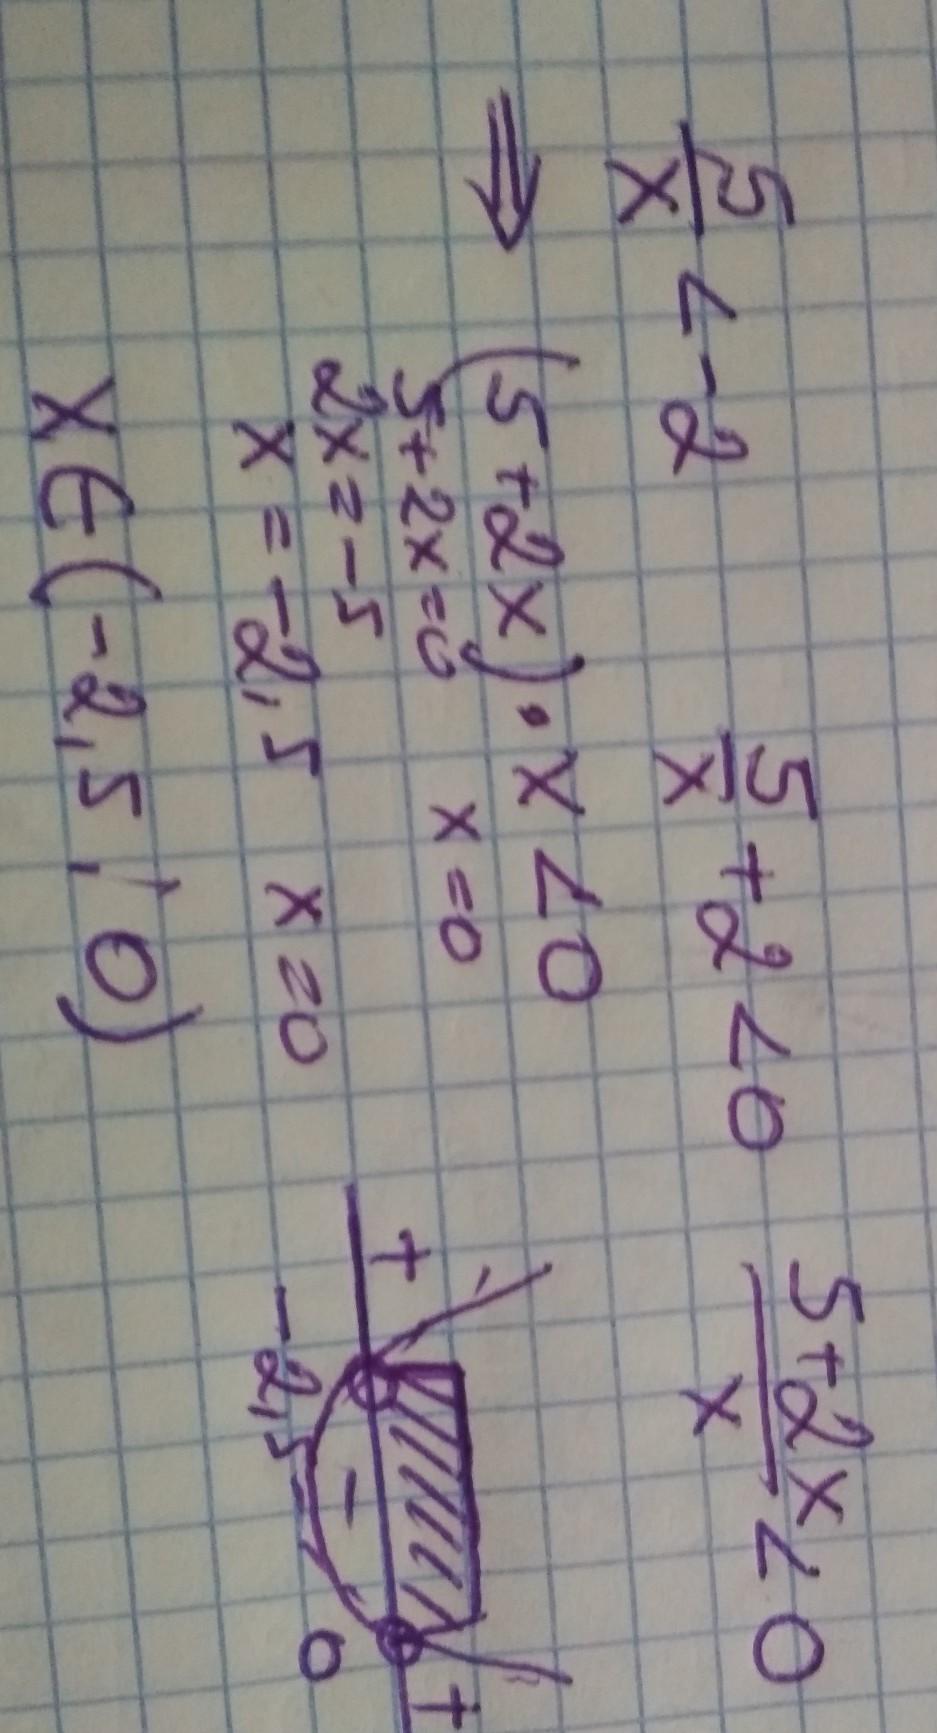 5/x < -2   5/x + 2 < 0   (5+2x)/x < 0
⇒ (5+2x)·x < 0
5+2x=0   x=0
2x=-5
x=-2,5   x=0
+ - +
-2,5 0
x∈(-2,5; 0)